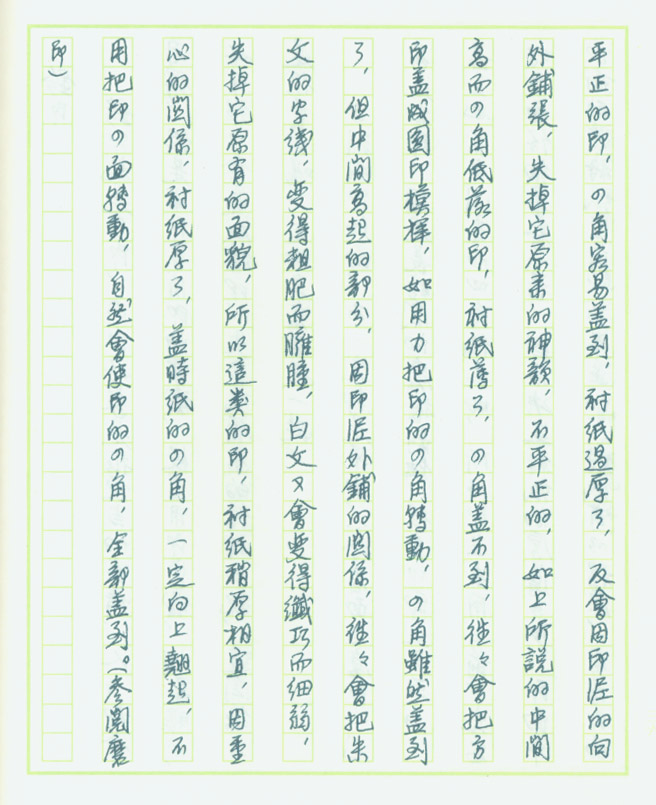 平正的印，四角容易蓋到，衬紙過厚了，反會因印泥的向
外鋪張，失掉它原来的神韻，不平正的，如上所說的中間
高而四角低落的印，衬紙薄了，四角盖不到，往々會把方
印盖成圆印模樣，如用力把印的四角轉動，四角雖然盖到
了，但中間高起的部分，因印泥外鋪的関係，往々會把朱
文的字綫，变得粗肥而臃腫，白文又會变得纖巧而细弱，
失掉它原有的面貌，所以這类的印，衬紙稍厚相宜，因重
心的関係，衬紙厚了，盖時紙的四角，一定向上翹起，不
用把印四面轉動，自然會使印的四角，全部盖到。（参閱磨
印）